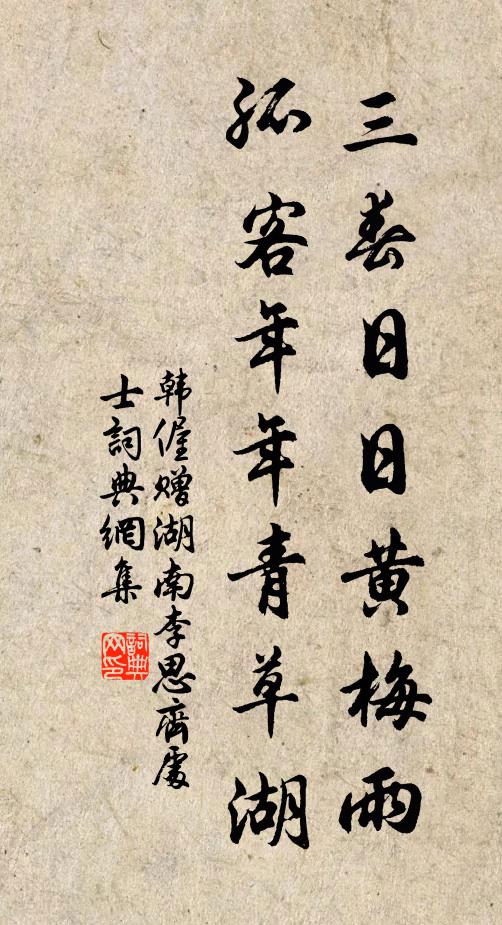 三春日日黄梅雨
孤客年年青草湖
韩偓赠湖南李思齊處
士詞典網集
詞典
网印